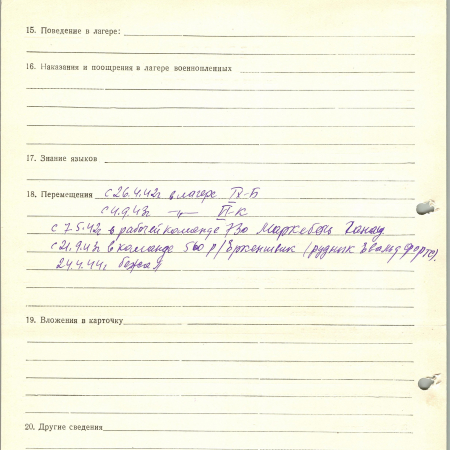 15. Поведение в лагере:
16. Наказания и поощрения в лагере военнопленных
17. Знание языков
18. Перемещения с 26.4.42г в лагере IX-Б
с 4.9.43г —"— VI-К
с 7.5.42г в рабочей команде 730 Маркебель Ганау
с 21.9.43г в команде 560 р/Эркеншвик (рудник Эвальд Форто).
24.4.44г бежал
19. Вложения в карточку
20. Другие сведения